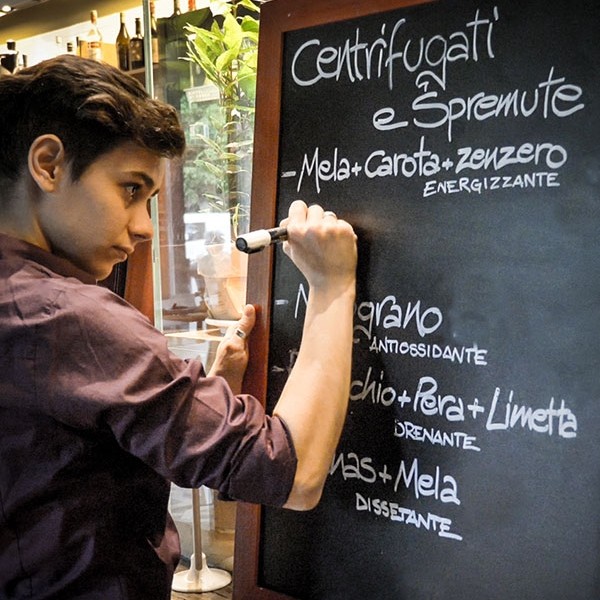 Centrifugati
e Spremute
- Mela + Carota + zenzero
ENERGIZZANTE
grano
ANTIOSSIDANTE
chio + Pera + Limetta
DRENANTE
nas + Mela
DISSETANTE